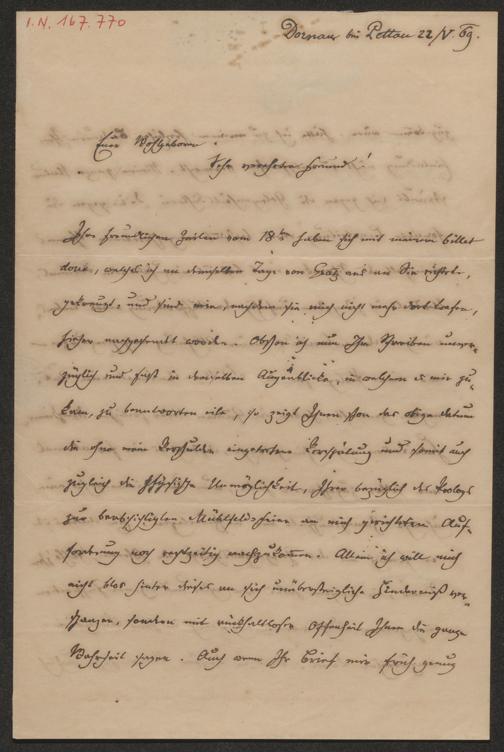 I.N. 167.770
Dornau bei Pettau 22/V. 69.
Euer Wohlgeboren!
Sehr verehrter Freund!
Ihre freundlichen Zeilen vom 18t haben sich mit meinem billet
doux, welches ich an demselben Tage von Graz aus an Sie richtete,
gekreuzt, und sind mir, nachdem sie mich nicht mehr dort trafen,
hieher nachgesendet worden. Obschon ich nun Ihr Schreiben unver-
züglich und fast in demselben Augenblicke, in welchem es mir zu-
kam, zu beantworten eile, so zeigt Ihnen schon das obige Datum
die ohne mein Verschulden eingetretene Verspätung und somit auch
zugleich die physische Unmöglichkeit, Ihrer bezüglich des Prologs
zur beabsichtigten Mühlfeldfeier an mich gerichteten Auf-
forderung noch rechtzeitig nachzukommen. Allein ich will mich
nicht blos hinter dieses an sich unübersteigliche Hinderniß ver-
schanzen, sondern mit rückhaltloser Offenheit Ihnen die ganze
Wahrheit sagen. Auch wenn Ihr Brief mir früh genug